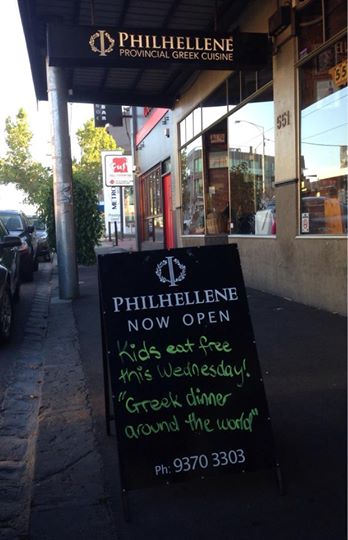 PHILHELLENE
PROVINCIAL GREEK CUISINE
551
METRO
PHILHELLENE
NOW OPEN
Kids eat free
this Wednesday!
"Greek dinner
around the world"
Ph: 9370 3303